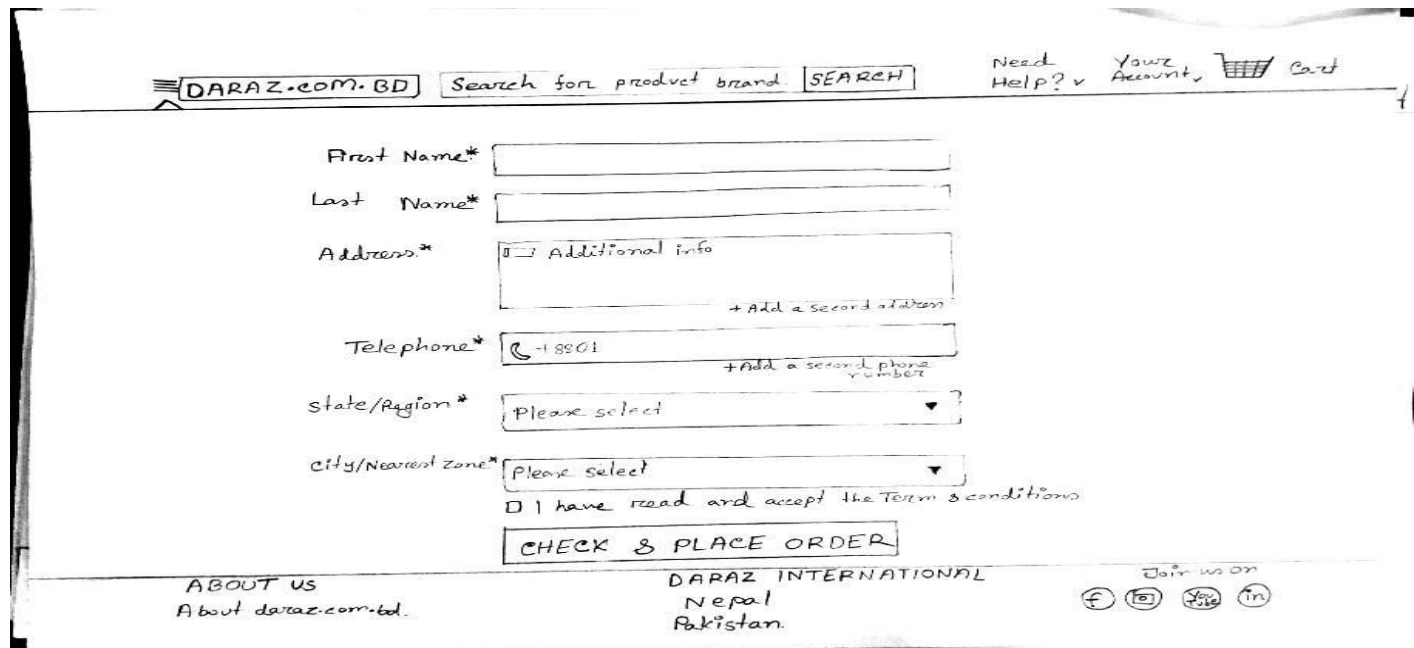 DARAZ.COM.BD Search for product brand. SEARCH Need Help? Your Account Cart
First Name*
Last Name*
Address.* Additional info
+ Add a second address
Telephone* +8801
+Add a second phone number
State/Region* Please select
City/Nearest Zone* Please select
I have read and accept the Term & conditions
CHECK & PLACE ORDER
ABOUT US DARAZ INTERNATIONAL Join us on
About daraz.com.bd. Nepal f You Tube in
Pakistan.